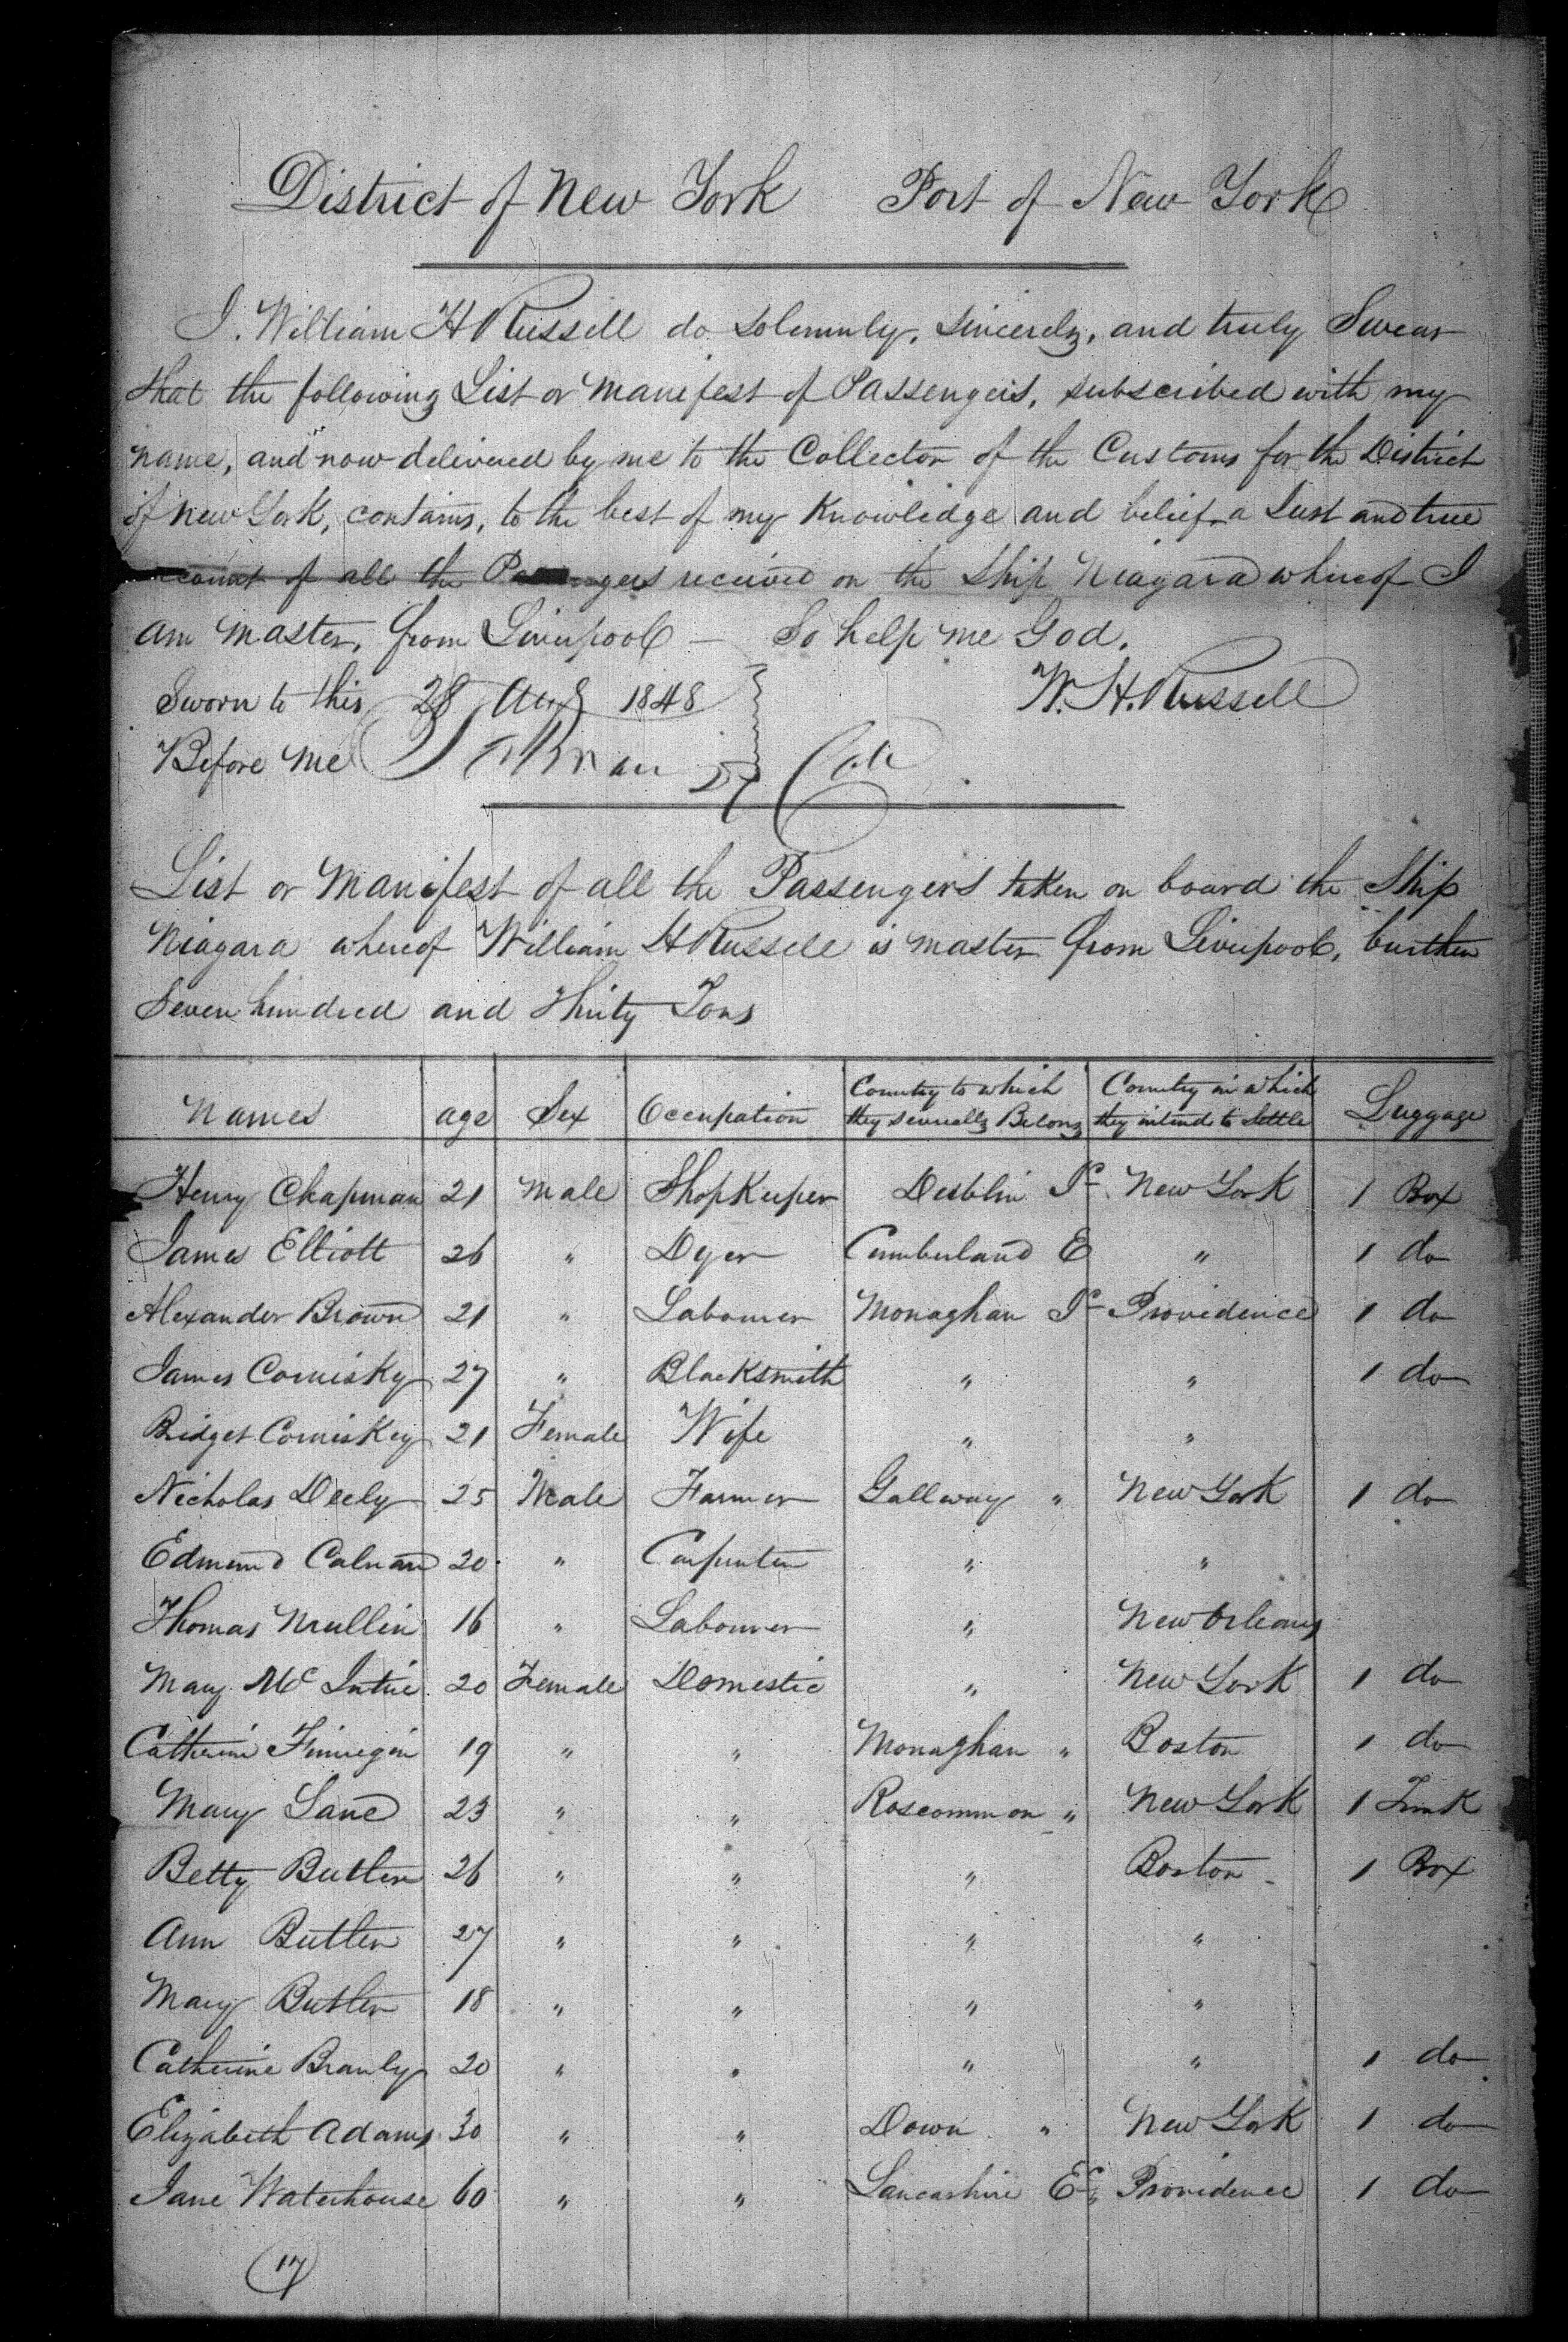 District of New York Port of New York
I. William H Russell do solemnly, sincerely, and truly Swear
that the following List or Manifest of Passengers, subscribed with my
name, and now delivered by me to the Collector of the Customs for the District
of New York, contains, to the best of my Knowledge and belief a Just and true
account of all the Passengers received on the Ship Niagara whereof I
am Master, from Liverpool — So help me God.
Sworn to this 28 Aug 1848 W. H. Russell
Before me
List or Manifest of all the Passengers taken on board the Ship
Niagara whereof William H Russell is master from Liverpool, burthen
Seven hundred and Thirty Tons
Names age Sex Occupation Country to which they severally Belong Country in which they intend to Settle Luggage
Henry Chapman 21 Male ShopKeeper Dublin Id New York 1 Box
James Elliott 26 " Dyer Cumberland E " 1 do
Alexander Brown 21 " Labourer Monaghan Id Providence 1 do
James Comisky 27 " Blacksmith " " 1 do
Bridget Comiskey 21 Female Wife " "
Nicholas Deely 25 Male Farmer Gallway " New York 1 do
Edmund Calnan 20 " Carpenter " "
Thomas Mullin 16 " Labourer " New Orleans
Mary Mc Intire 20 Female Domestic " New York 1 do
Catherine Finnegan 19 " " Monaghan " Boston 1 do
Mary Lane 23 " " Roscommon " New York 1 Trunk
Betty Butler 26 " " " Boston 1 Box
Ann Butler 27 " " " "
Mary Butler 18 " " " "
Catherine Branly 20 " " " " 1 do
Elizabeth Adams 30 " " Down " New York 1 do
Jane Waterhouse 60 " " Lancashire E Providence 1 do
17